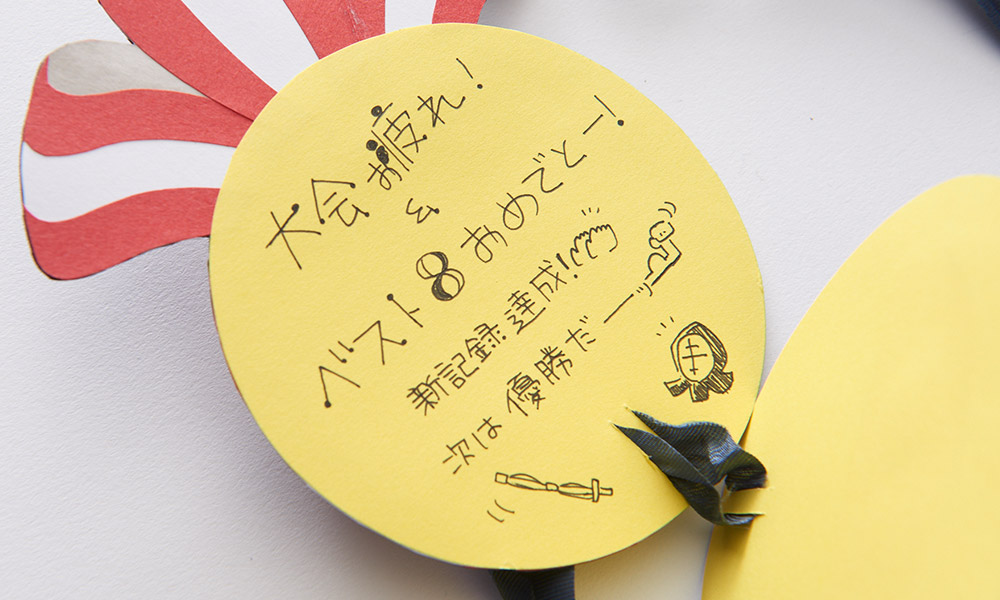 大会お疲れ!
&
ベスト8おめでとー!
新記録達成!
次は優勝だー